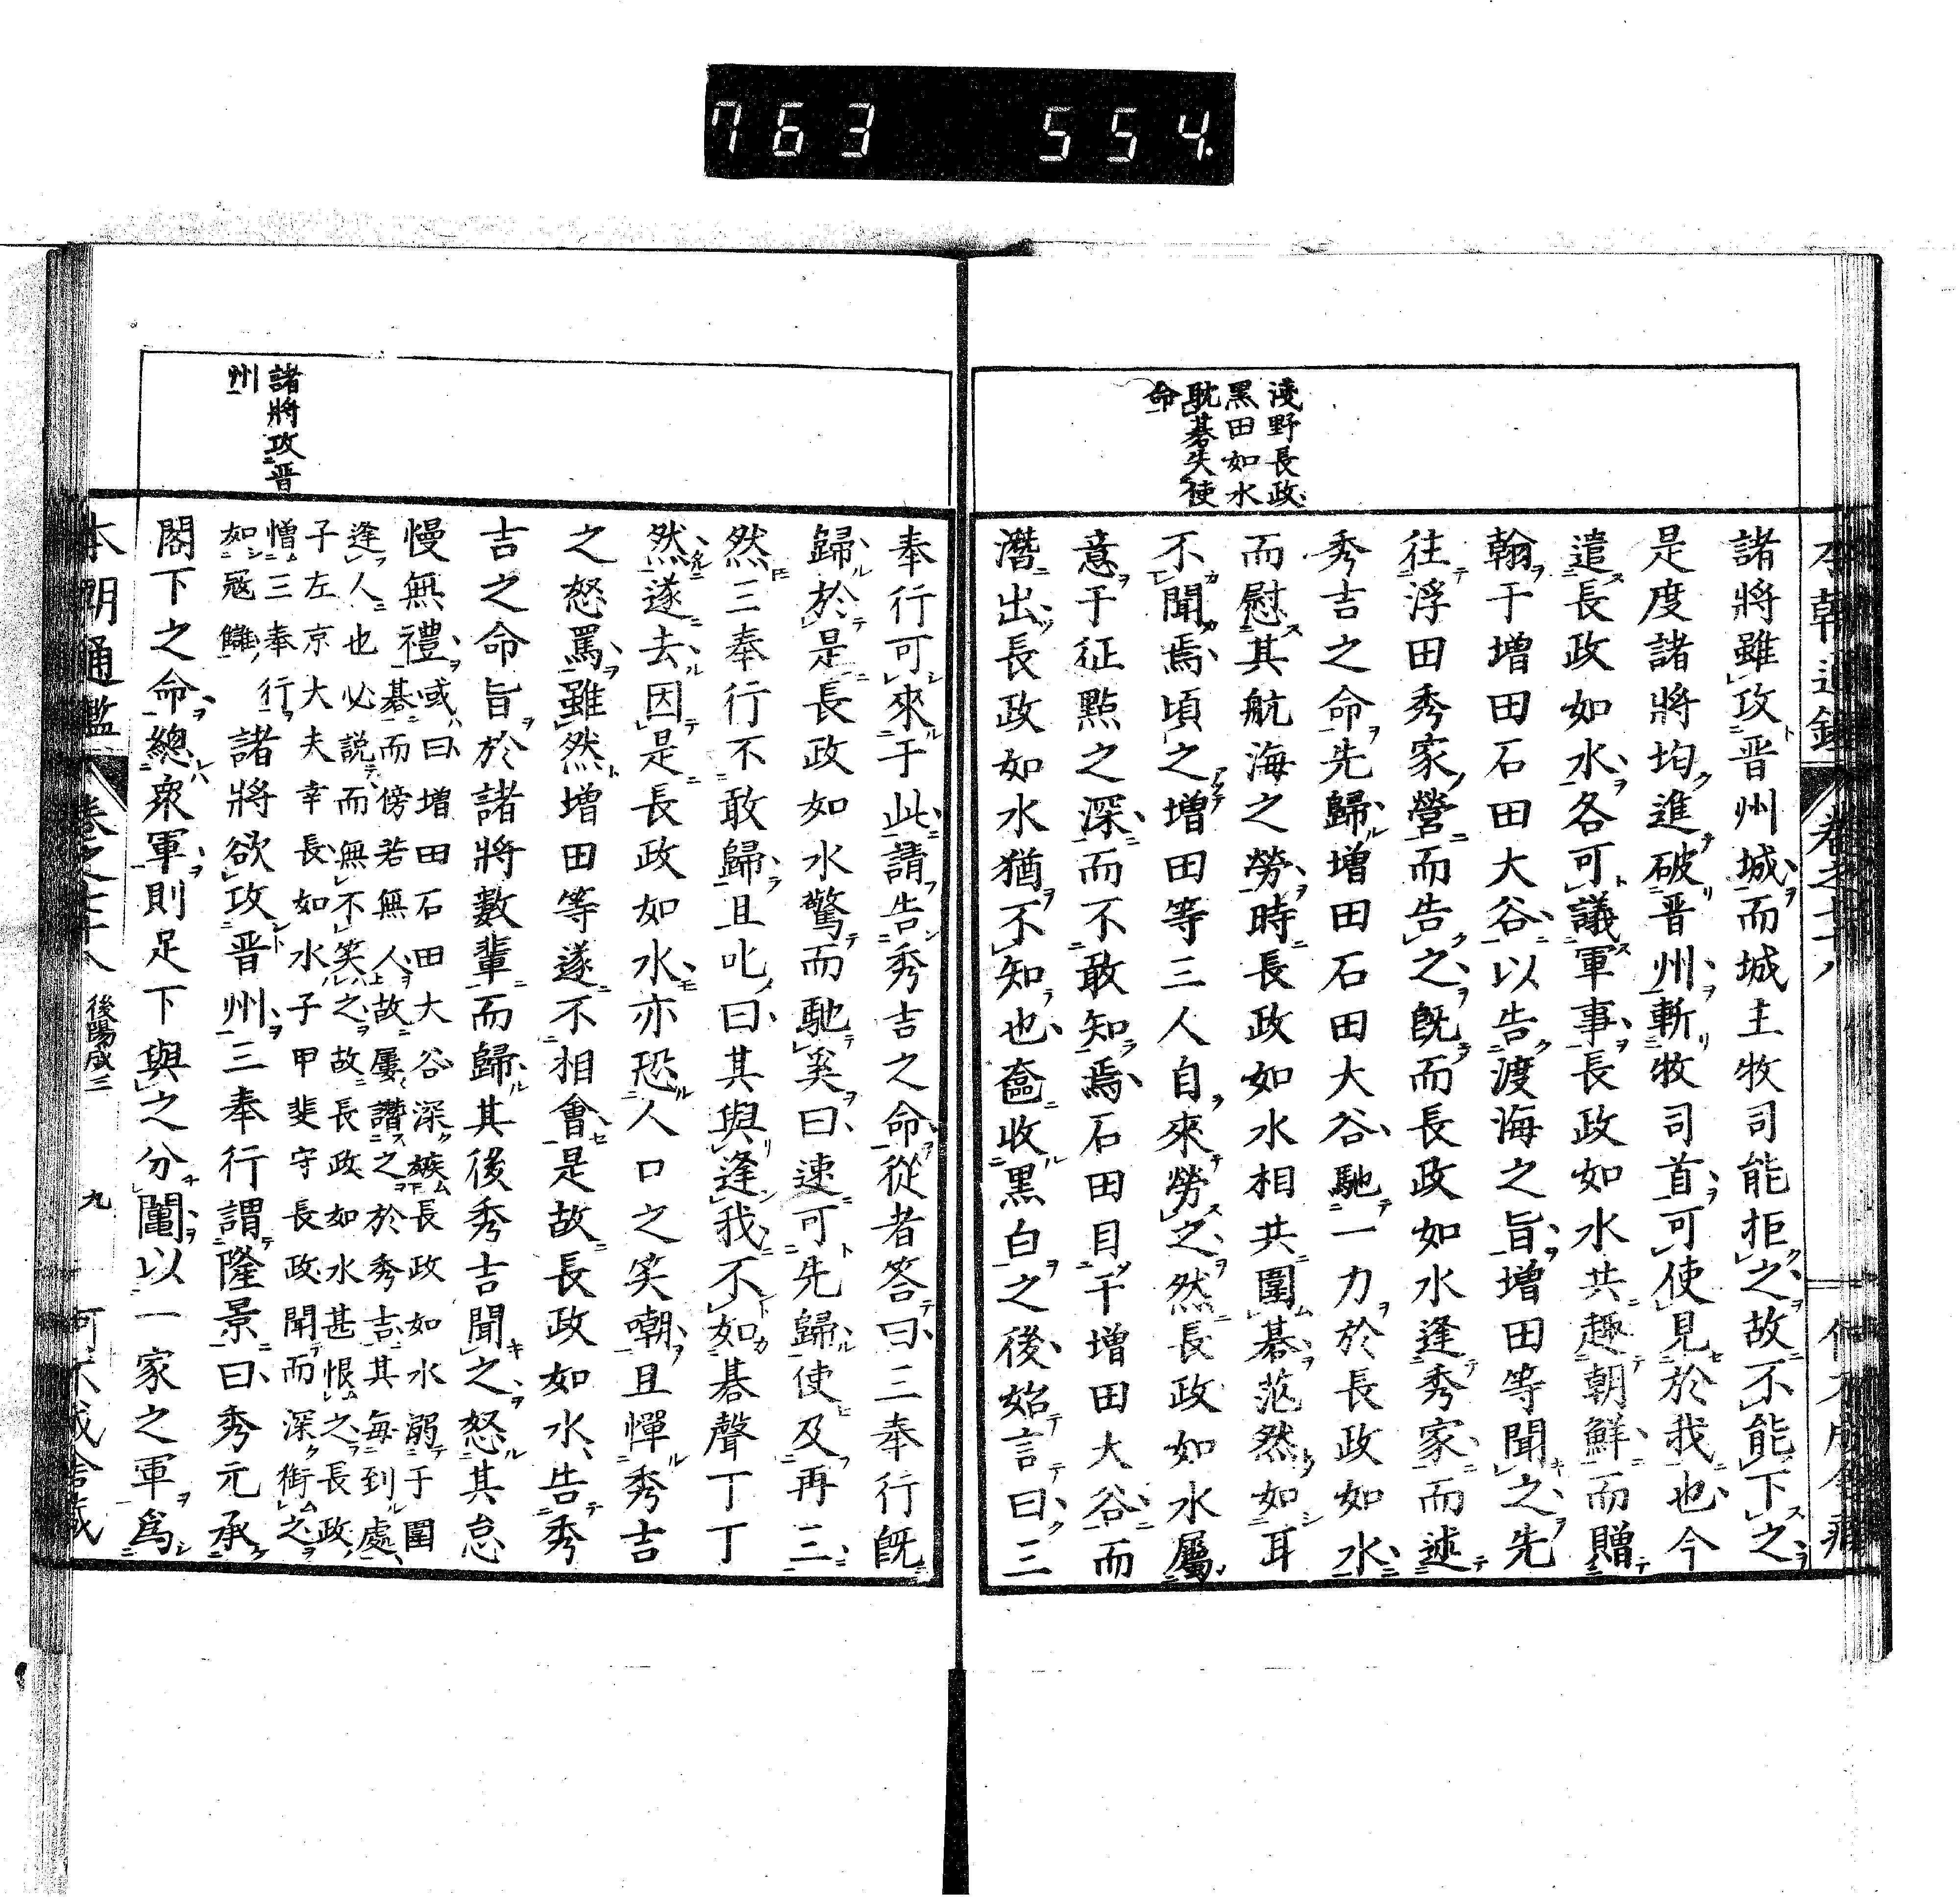 763 554.
淺野長政
黑田如水
耽碁失使
命
諸將雖攻晋州城而城主牧司能拒之故不能下之
是度諸將均進破晋州斬牧司首可使見於我也今
遣長政如水各可議軍事長政如水共趣朝鮮而贈
翰于增田石田大谷以告渡海之旨增田等聞之先
往浮田秀家營而告之旣而長政如水逢秀家而述
秀吉之命先歸增田石田大谷馳一力於長政如水
而慰其航海之勞時長政如水相共圍碁茫然如耳
不聞焉頃之增田等三人自來勞之然長政如水屬
意于征點之深而不敢知焉石田目于增田大谷而
潛出長政如水猶不知也奩收黑白之後始言曰三
諸將攻晋
州
奉行可來于此請告秀吉之命從者答曰三奉行旣
歸於是長政如水驚而馳奚曰速可先歸使及再三
然三奉行不敢歸且叱曰其與逢我不如碁聲丁丁
然遂去因是長政如水亦恐人口之笑嘲且憚秀吉
之怒罵雖然增田等遂不相會是故長政如水告秀
吉之命旨於諸將數輩而歸其後秀吉聞之怒其怠
慢無禮或曰增田石田大谷深嫉長政如水溺于圍
碁而傍若無人故屢譖之於秀吉其每到處
逢人也必說而無不笑之故長政如水甚恨之長政
子左京大夫幸長如水子甲斐守長政聞而深銜之
憎三奉行
如寇讎
諸將欲攻晋州三奉行謂隆景曰秀元承
閣下之命總衆軍則足下與之分鬮以一家之軍爲
本朝通鑑 卷之七十八 後陽成三 九